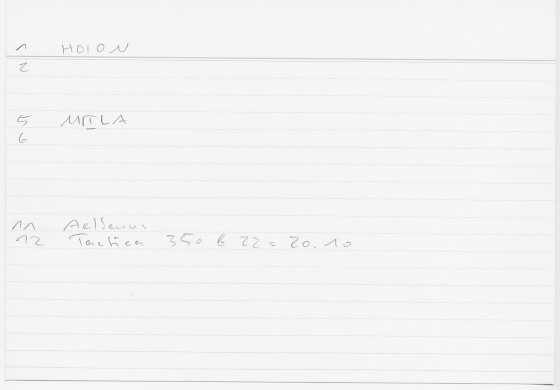 1 HOION
2
5 MILA
6
11 Aelianus
12 Tactica 350 b 22 = 20.10